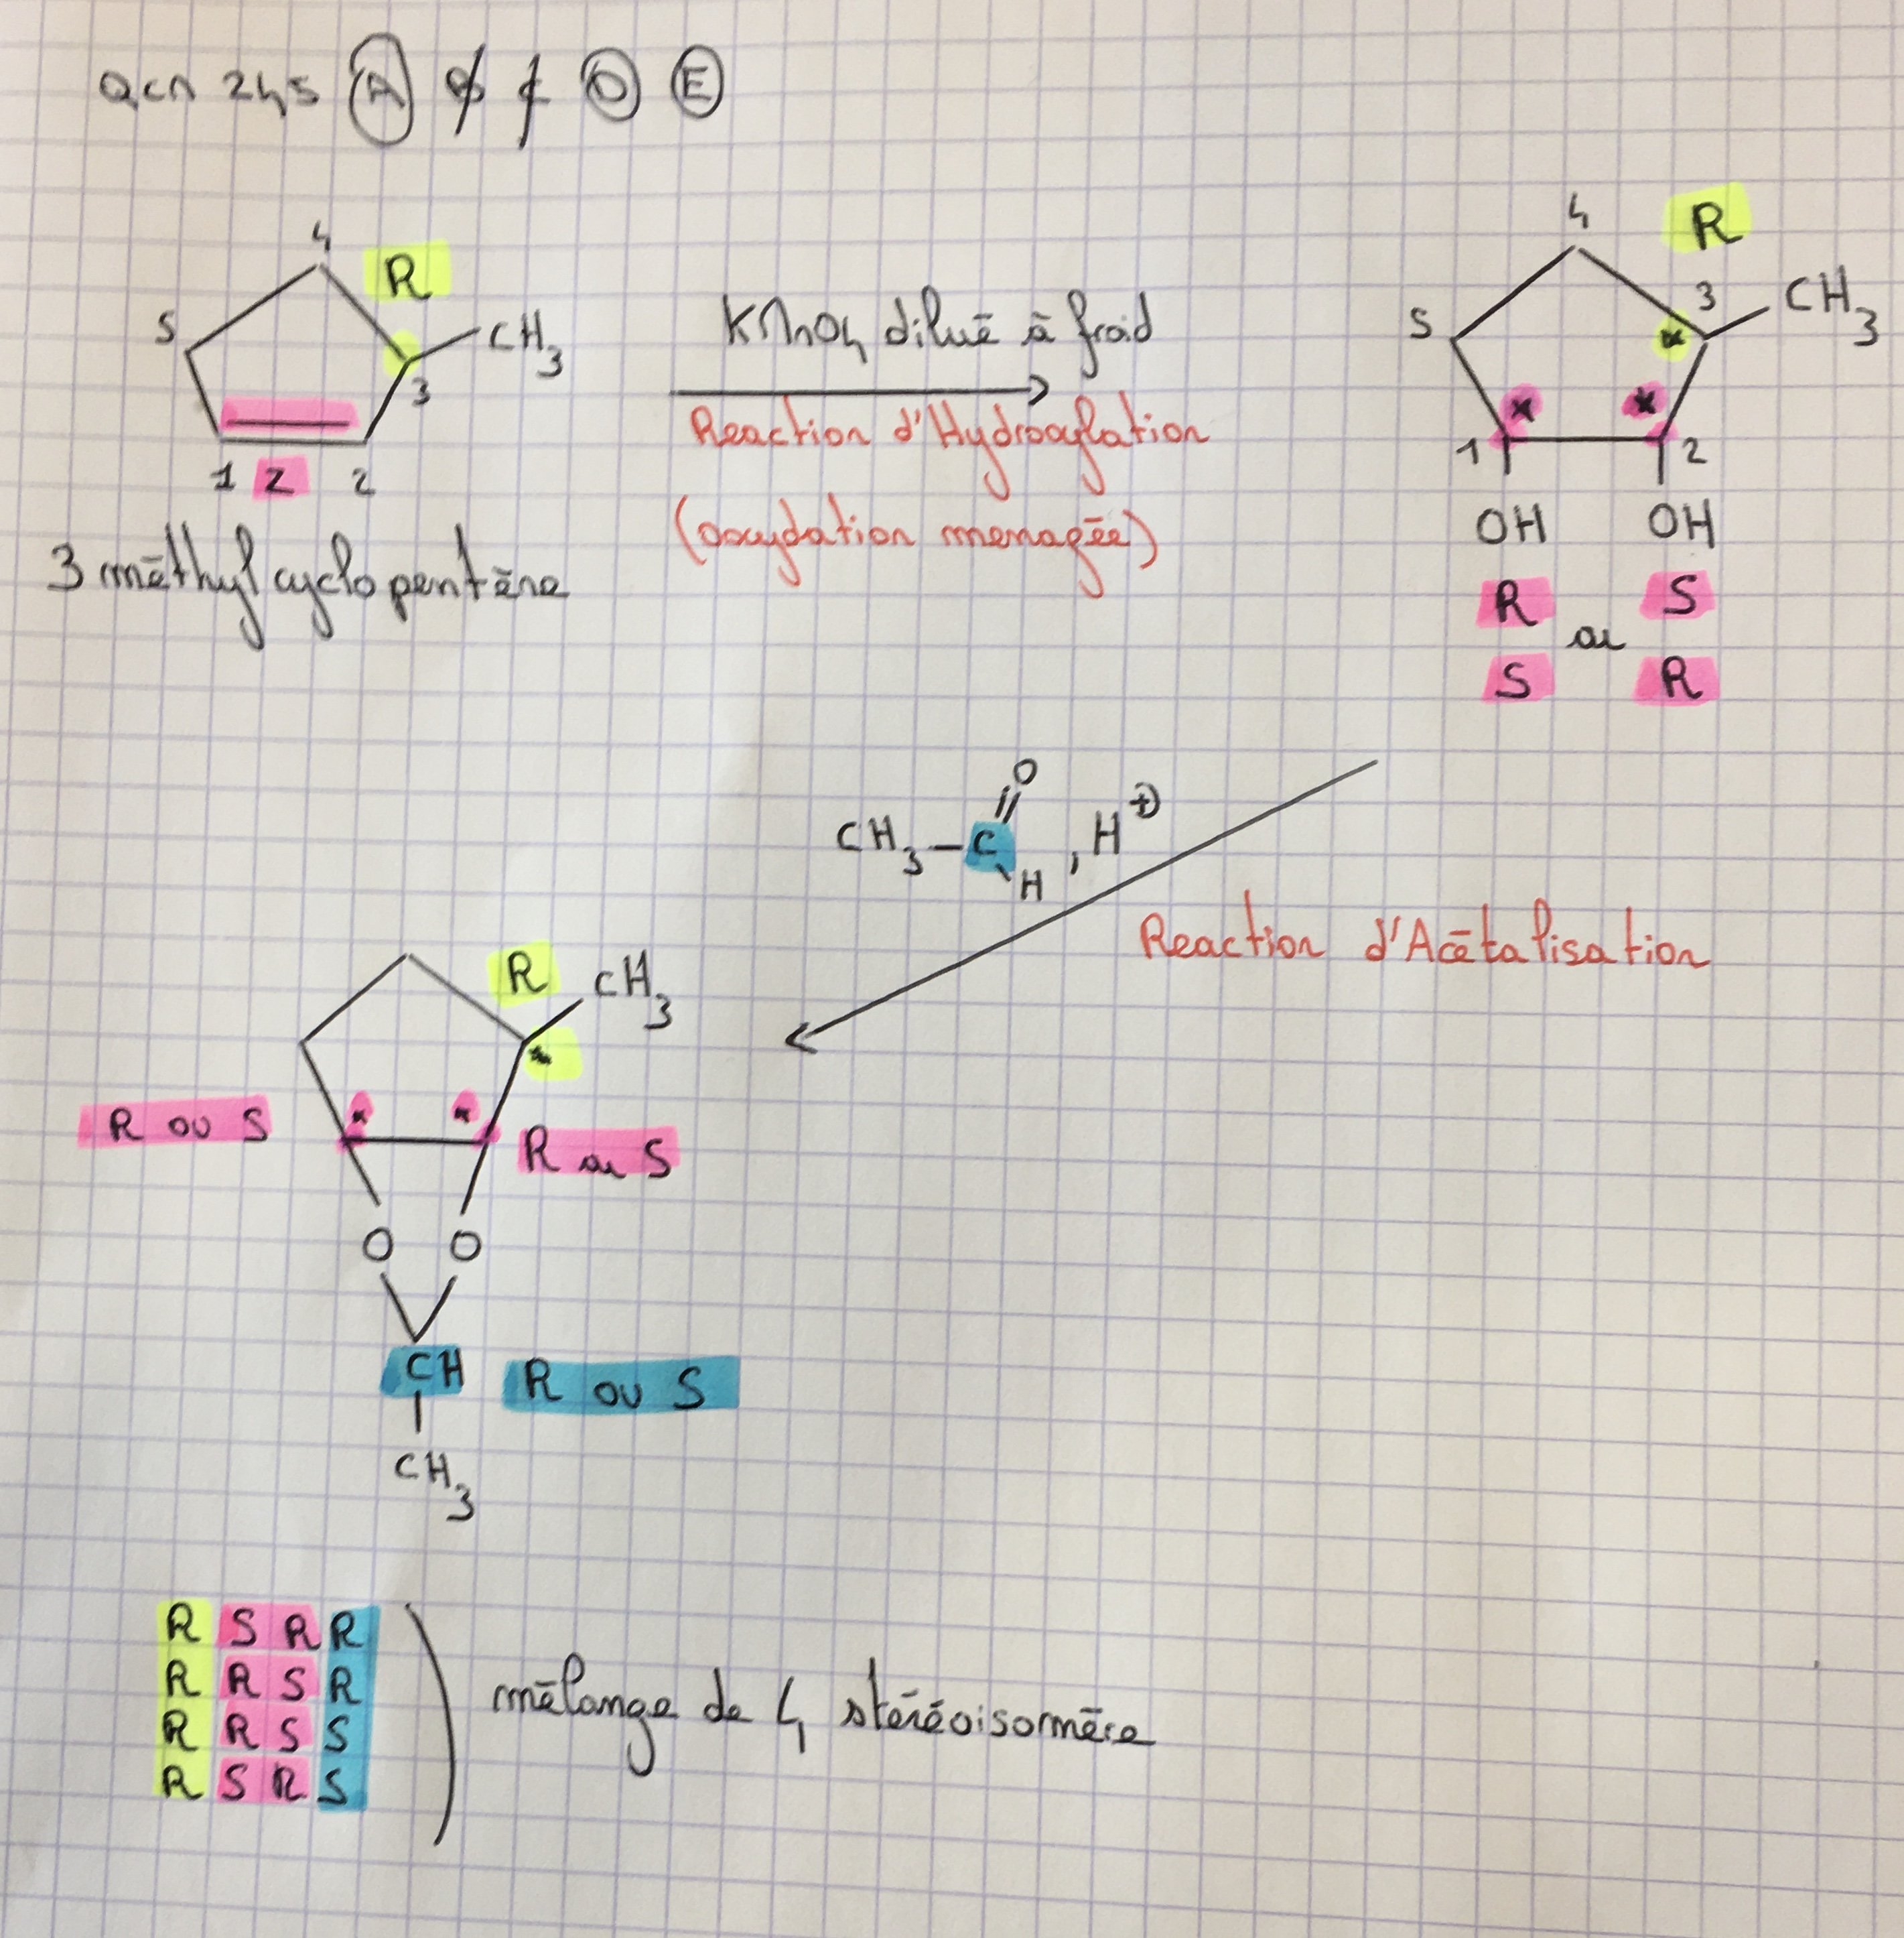 Qcm 245 A B C D E
4 R
5 CH3
3
1 Z 2
3 méthyl cyclo pentène
KMnO4 dilué à froid
Reaction d'Hydroxylation
(oxydation menagée)
4 R
5 3 CH3
* * *
1 2
OH OH
R S
ou
S R
CH3-C O H , H+
Reaction d'Acétalisation
R CH3
*
* *
R ou S R ou S
O O
CH R ou S
CH3
R S R R
R R S R
R R S S
R S R S
mélange de 4 stéréoisomère